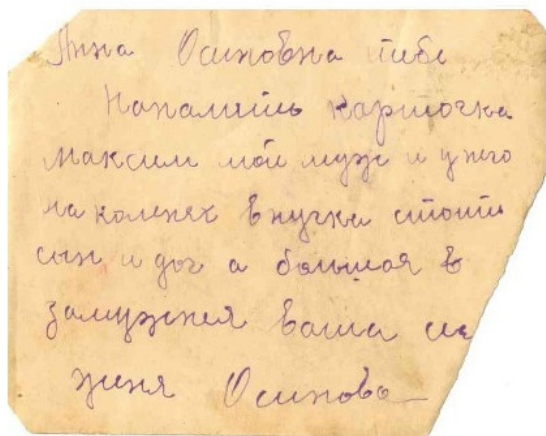 Анна Осиповна тибе
Напаметь карточка
Максим мой муж и у него
на коленях внучка стоит
сын и доч а большая в
замужжея ваша
женя Осипова